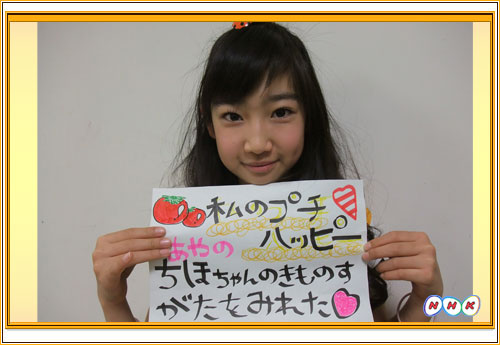 私のプチ
ハッピー
あやの
ちほちゃんのきものす
がたをみれた
NHK